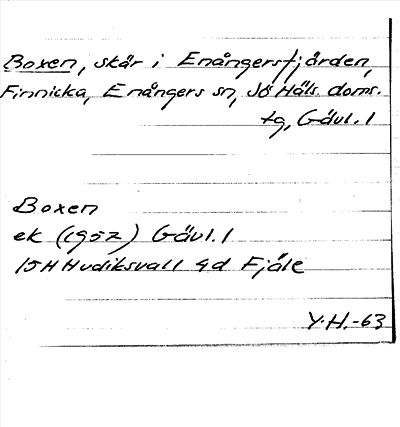 Boxen, skär i Enångersfjärden,
Finnicka, Enångers sn, Jö Häls. doms.
tg, Gävl. l
Boxen
ek (1957) Gävl. l
15H Hudiksvall 4d Fjäle
Y.H.-63